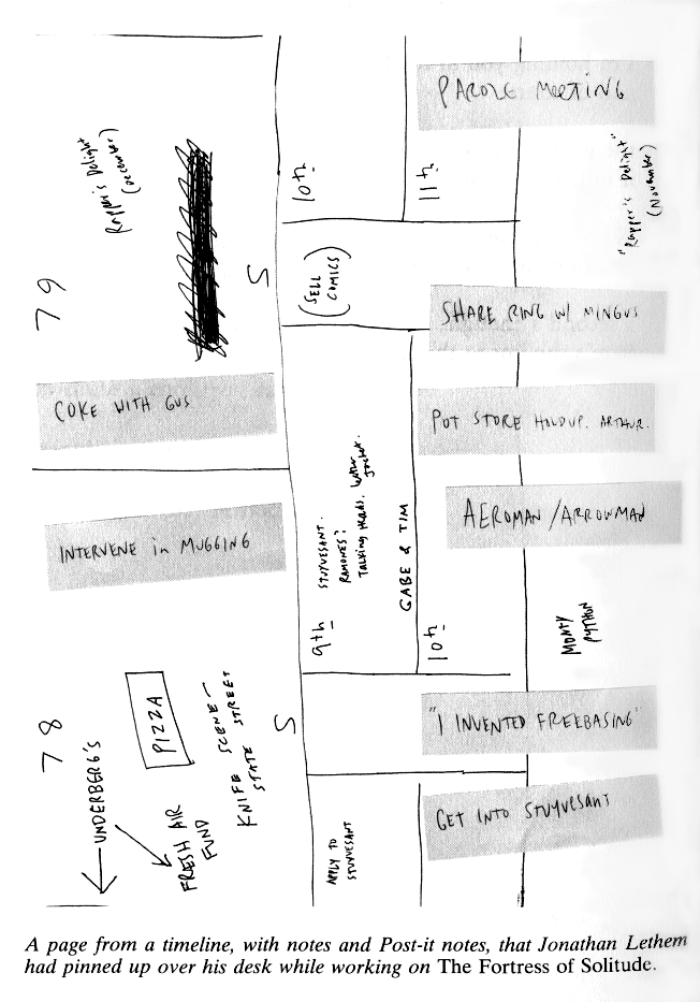 PAROLE MEETING
Rapper's Delight
(DECEMBER)
10th
11th
"Rapper's Delight"
(November)
79
S
(SELL
COMICS)
SHARE RING W/ MINGUS
COKE WITH GUS
POT STORE HOLDUP. ARTHUR.
AEROMAN / ARROWMAN
INTERVENE in MUGGING
9th
STUYVESANT.
RAMONES?
TALKING HEADS. leather
jacket.
GABE & TIM
10th
MONTY
PYTHON
78
UNDERBERG'S
PIZZA
FRESH AIR
FUND
KNIFE SCENE—
STATE STREET
S
"I INVENTED FREEBASING"
APPLY TO
STUYVESANT
GET INTO STUYVESANT
A page from a timeline, with notes and Post-it notes, that Jonathan Lethem
had pinned up over his desk while working on The Fortress of Solitude.